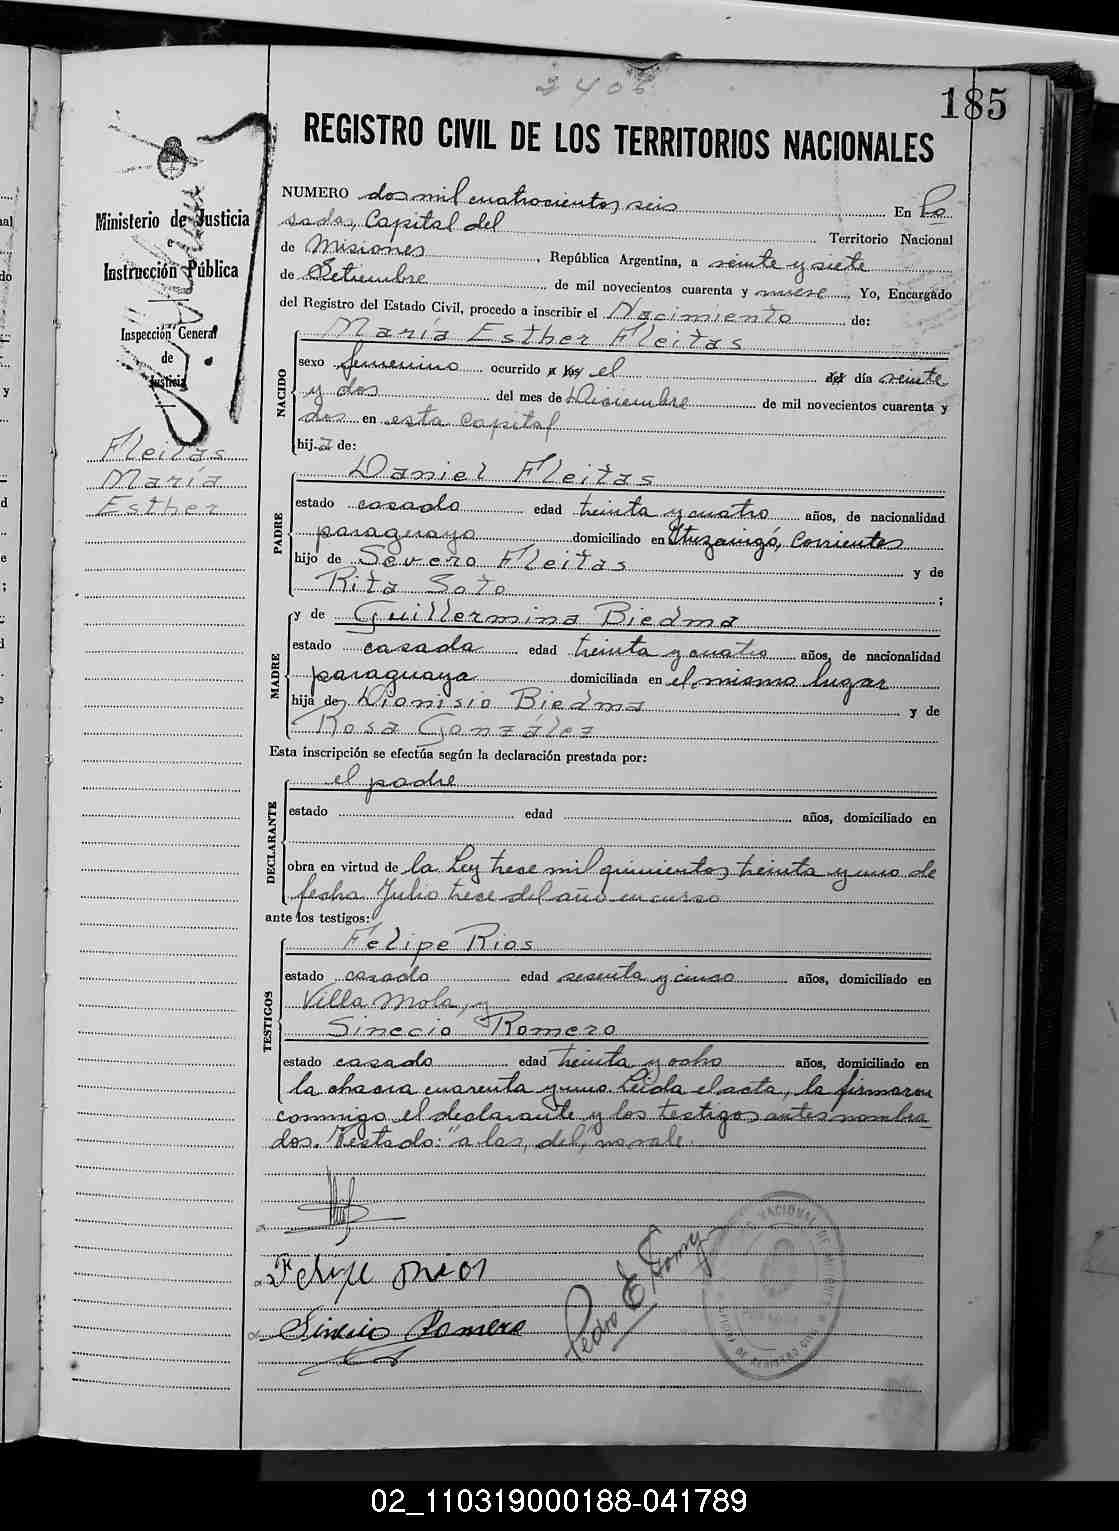 2406
185
REGISTRO CIVIL DE LOS TERRITORIOS NACIONALES
Ministerio de Justicia
e
Instrucción Pública
Inspección General
de
Justicia
Fleitas
María
Esther
NUMERO dos mil cuatrocientos seis En Po
sadas, Capital del Territorio Nacional
de Misiones, República Argentina, a veinte y siete
de Setiembre de mil novecientos cuarenta y nueve, Yo, Encargado
del Registro del Estado Civil, procedo a inscribir el Nacimiento de:
María Esther Fleitas
NACIDO
sexo femenino ocurrido a las el del día veinte
y dos del mes de Diciembre de mil novecientos cuarenta y
dos en esta capital
hija de:
PADRE
Daniel Fleitas
estado casado edad treinta y cuatro años, de nacionalidad
paraguayo domiciliado en Ituzaingó, Corrientes
hijo de Severo Fleitas y de
Rita Soto ;
MADRE
y de Guillermina Biedma
estado casada edad treinta y cuatro años, de nacionalidad
paraguaya domiciliada en el mismo lugar
hija de Dionisio Biedma y de
Rosa González
Esta inscripción se efectúa según la declaración prestada por:
DECLARANTE
el padre
estado edad años, domiciliado en
obra en virtud de la Ley trece mil quinientos treinta y uno de
fecha Julio trece del año en curso
ante los testigos:
TESTIGOS
Felipe Rios
estado casado edad sesenta y cinco años, domiciliado en
Villa Mola, y
Sinecio Romero
estado casado edad treinta y ocho años, domiciliado en
la chacra cuarenta y uno. Leida el acta, la firmaron
conmigo el declarante y los testigos antes nombra
dos. Testado: "a las, del," no vale.
Felipe Rios
Sinecio Romero
Pedro E.
02_110319000188-041789